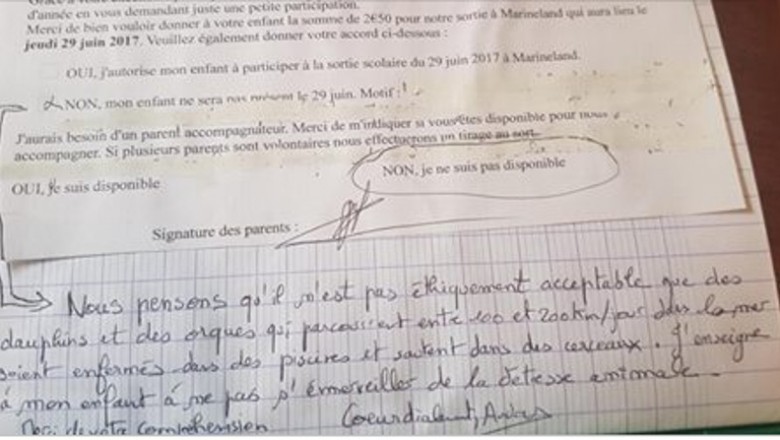 d'année en vous demandant juste une petite participation.
Merci de bien vouloir donner à votre enfant la somme de 2€50 pour notre sortie à Marineland qui aura lieu le
jeudi 29 juin 2017. Veuillez également donner votre accord ci-dessous :
OUI, j'autorise mon enfant à participer à la sortie scolaire du 29 juin 2017 à Marineland.
NON, mon enfant ne sera pas présent le 29 juin. Motif :
J'aurais besoin d'un parent accompagnateur. Merci de m'indiquer si vous êtes disponible pour nous
accompagner. Si plusieurs parents sont volontaires nous effectuerons un tirage au sort.
NON, je ne suis pas disponible
OUI, je suis disponible
Signature des parents :
Nous pensons qu'il n'est pas éthiquement acceptable que des
dauphins et des orques qui parcourent entre 100 et 200 km/jour dans la mer
soient enfermés dans des piscines et sautent dans des cerceaux. J'enseigne
à mon enfant à ne pas s'émerveiller de la détresse animale.
Merci de votre compréhension